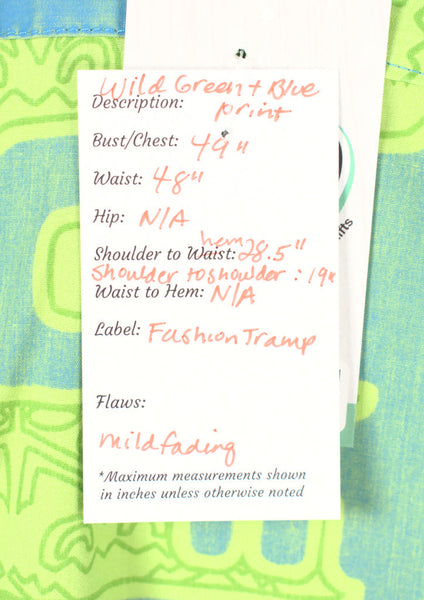 Wild Green + Blue
Description: print
Bust/Chest: 49"
Waist: 48"
Hip: N/A
hem
Shoulder to Waist: 28.5"
Shoulder to shoulder: 19"
Waist to Hem: N/A
Label: Fashion Tramp
Flaws:
mild fading
*Maximum measurements shown
in inches unless otherwise noted